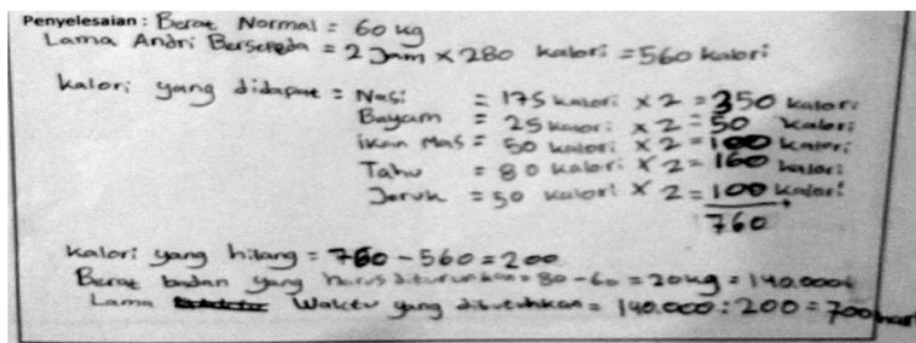 Penyelesaian : Berat Normal = 60 kg
Lama Andri Bersepeda = 2 Jam × 280 kalori = 560 kalori
kalori yang didapat = Nasi = 175 kalori × 2 = 350 kalori
Bayam = 25 kalori × 2 = 50 kalori
ikan Mas = 50 kalori × 2 = 100 kalori
Tahu = 80 kalori × 2 = 160 kalori
Jeruk = 50 kalori × 2 = 100 kalori +
760
kalori yang hilang = 760 - 560 = 200
Berat badan yang harus diturunkan = 80 - 60 = 20 kg = 140.000
Lama Waktu yang dibutuhkan = 140.000 : 200 = 700 hari